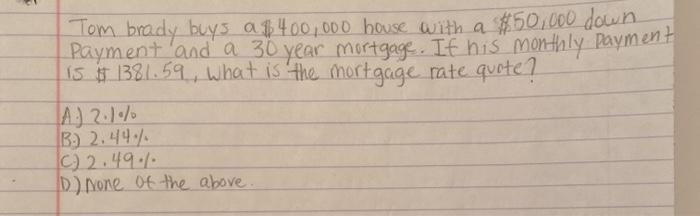 Tom brady buys a $400,000 house with a $50,000 down
Payment and a 30 year mortgage. If his monthly Payment
is $ 1381.59, what is the mortgage rate quote?
A.) 2.1%
B.) 2.44%
C) 2.49%
D) None of the above.